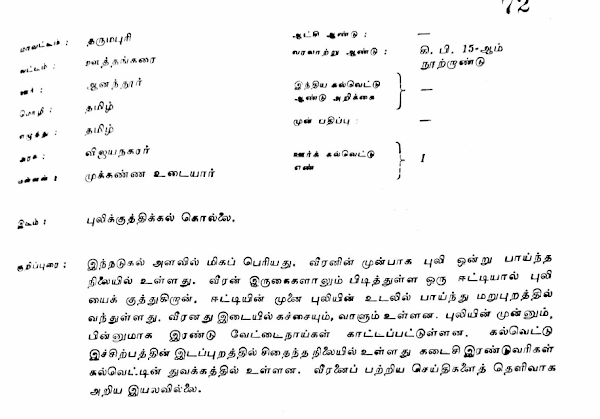 72
மாவட்டம் : தருமபுரி ஆட்சி ஆண்டு : —
வட்டம் : ஊத்தங்கரை வரலாற்று ஆண்டு : கி. பி. 15-ஆம் நூற்றாண்டு
ஊர் : ஆனந்தூர் இந்திய கல்வெட்டு ஆண்டு அறிக்கை —
மொழி : தமிழ்
எழுத்து : தமிழ் முன் பதிப்பு : —
அரசு : விஜயநகரர் ஊர்க் கல்வெட்டு எண் 1
மன்னன் : முக்கண்ண உடையார்
இடம் : புலிக்குத்திக்கல் கொல்லை.
குறிப்புரை : இந்நடுகல் அளவில் மிகப் பெரியது. வீரனின் முன்பாக புலி ஒன்று பாய்ந்த
நிலையில் உள்ளது. வீரன் இருகைகளாலும் பிடித்துள்ள ஒரு ஈட்டியால் புலி
யைக் குத்துகிறான். ஈட்டியின் முனை புலியின் உடலில் பாய்ந்து மறுபுறத்தில்
வந்துள்ளது. வீரனது இடையில் கச்சையும், வாளும் உள்ளன. புலியின் முன்னும்,
பின்னுமாக இரண்டு வேட்டைநாய்கள் காட்டப்பட்டுள்ளன. கல்வெட்டு
இச்சிற்பத்தின் இடப்புறத்தில் சிதைந்த நிலையில் உள்ளது கடைசி இரண்டுவரிகள்
கல்வெட்டின் துவக்கத்தில் உள்ளன. வீரனைப் பற்றிய செய்திகளைத் தெளிவாக
அறிய இயலவில்லை.